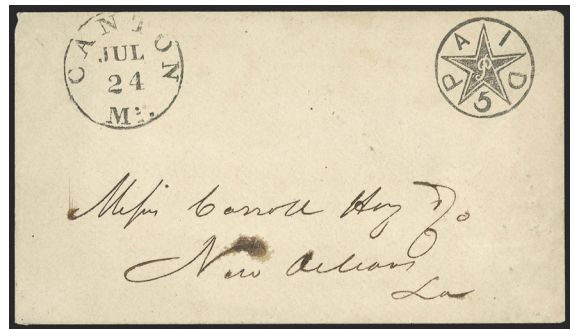 CANTON
JUL
24
Mi.
PAID
5
Messrs Carroll Hoy & Co
New Orleans
La